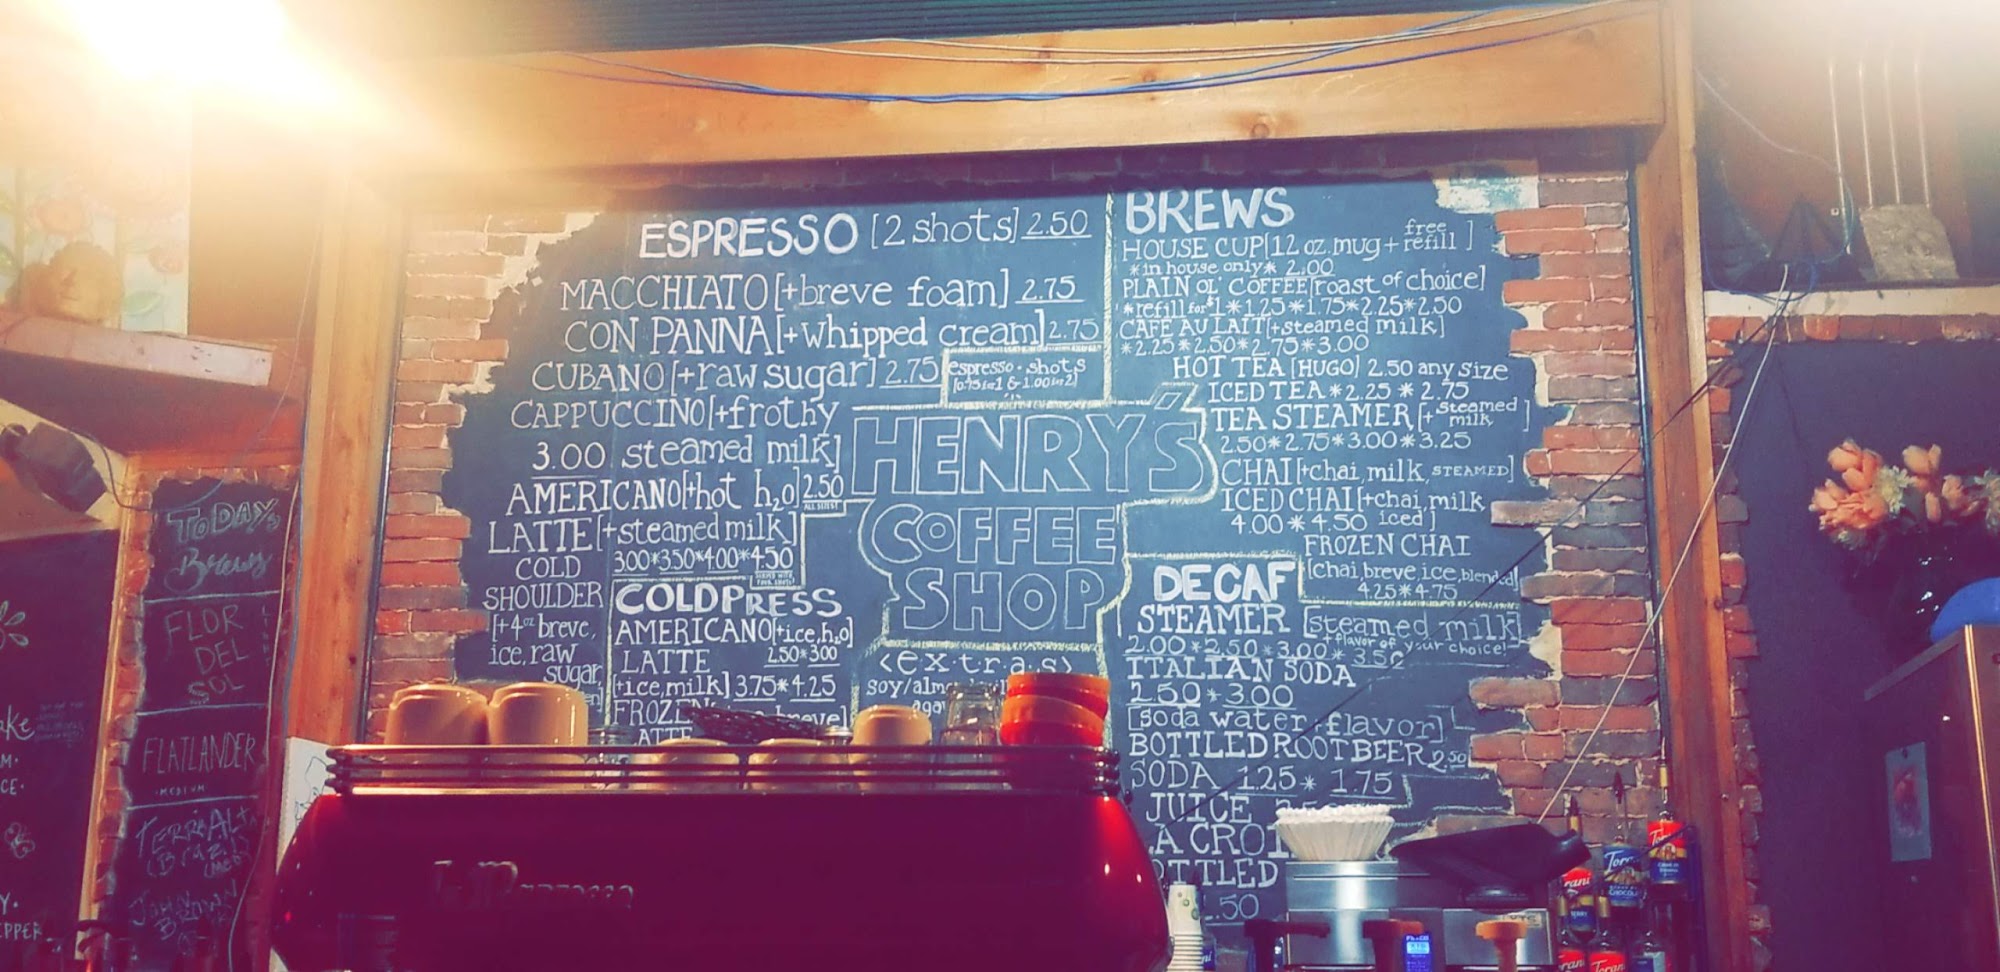 ESPRESSO [2 shots] 2.50
MACCHIATO [+breve foam] 2.75
CON PANNA [+whipped cream] 2.75
CUBANO [+raw sugar] 2.75
espresso · shots
CAPPUCCINO [+frothy
3.00 steamed milk]
AMERICANO [+hot h2o] 2.50
LATTE [+steamed milk]
3.00*3.50*4.00*4.50
COLD
SHOULDER
[+4oz breve,
ice, raw
sugar,
COLDPRESS
AMERICANO [+ice, h2o]
2.50*3.00
LATTE
[+ice, milk] 3.75*4.25
FROZEN
LATTE
HENRY'S
COFFEE
SHOP
<e·x·t·r·a·s>
BREWS
HOUSE CUP [12 oz. mug + free refill]
*in house only* 2.00
PLAIN OL' COFFEE [roast of choice]
*refill for $1*1.25*1.75*2.25*2.50
CAFE AU LAIT [+steamed milk]
*2.25*2.50*2.75*3.00
HOT TEA [HUGO] 2.50 any size
ICED TEA*2.25*2.75
TEA STEAMER [+steamed milk]
2.50*2.75*3.00*3.25
CHAI [+chai, milk, STEAMED]
ICED CHAI [+chai, milk
4.00*4.50 iced]
FROZEN CHAI
[chai, breve, ice, blended]
4.25*4.75
DECAF
STEAMER [steamed milk
+flavor of your choice!
2.00*2.50*3.00*3.50
ITALIAN SODA
2.50*3.00
[soda water + flavor]
BOTTLED ROOT BEER 2.50
SODA 1.25*1.75
JUICE
BOTTLED
TODAY'S
Brews
FLOR
DEL
SOL
FLATLANDER
·MEDIUM·
Torani
Torani